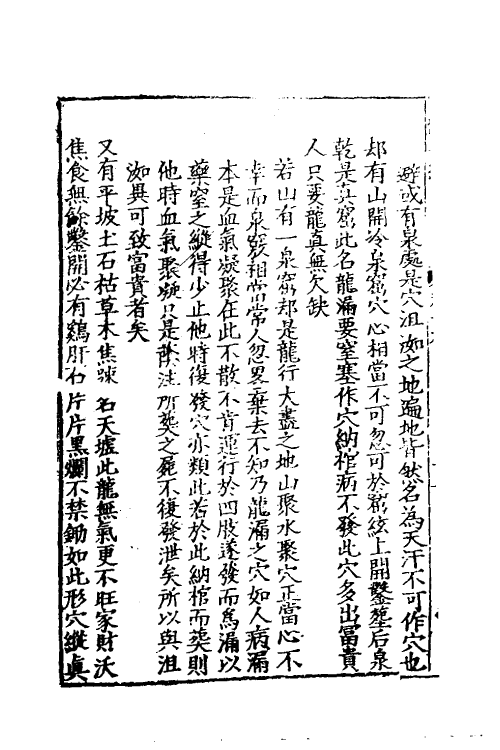 避或有泉處是穴沮洳之地遍地皆然名為天汗不可作穴也
却有山開冷泉窟穴心相當不可忽可於窟絃上開鑿塟后泉
乾是真窟此名龍漏要窒塞作穴納棺病不發此穴多出冨貴
人只要龍真無欠缺
若山有一泉窟却是龍行大盡之地山聚水聚穴正當心不
幸而泉竅相當常人忽畧棄去不知乃龍漏之穴如人病漏
本是血氣凝聚在此不散不肯運行於四肢遂發而為漏以
藥窒之縱得少止他時復發穴亦類此若於此納棺而葬則
他時血氣聚凝只是蔭注所葬之屍不復發泄矣所以與沮
洳異可致富貴者矣
又有平坡土石枯草木焦踈名天墟此龍無氣更不旺家財沃
焦食無餘鑿開必有鷄肝石片片黒爛不禁鋤如此形穴縱真